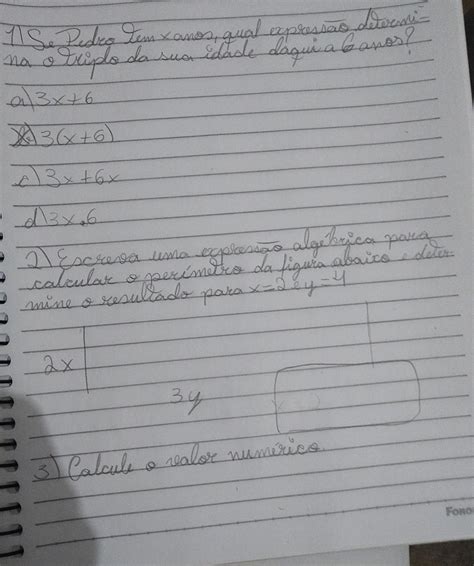 1) Se Pedro tem x anos, qual expressão determi-
na o triplo da sua idade daqui a 6 anos?
a) 3x+6
b) 3(x+6)
c) 3x+6x
d) 3x.6
2) Escreva uma expressão algébrica para
calcular o perímetro da figura abaixo e deter
mine o resultado para x=2 e y=4
2x
3y
3) Calcule o valor numérico.